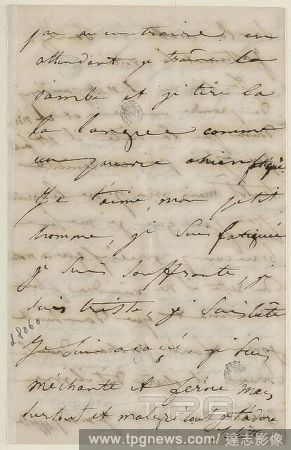 pas au contraire, en
attendant je traîne la
jambe et je tire la
la langue comme
un pauvre chien fatigué
Je t'aime, mon petit
homme, je suis fatiguée
je suis souffrante, je
suis triste je suis bête
Je suis je suis
méchante et féroce mais
surtout et malgré tout je t'adore
28060
TPG
www.tpgnews.com / 達志影像